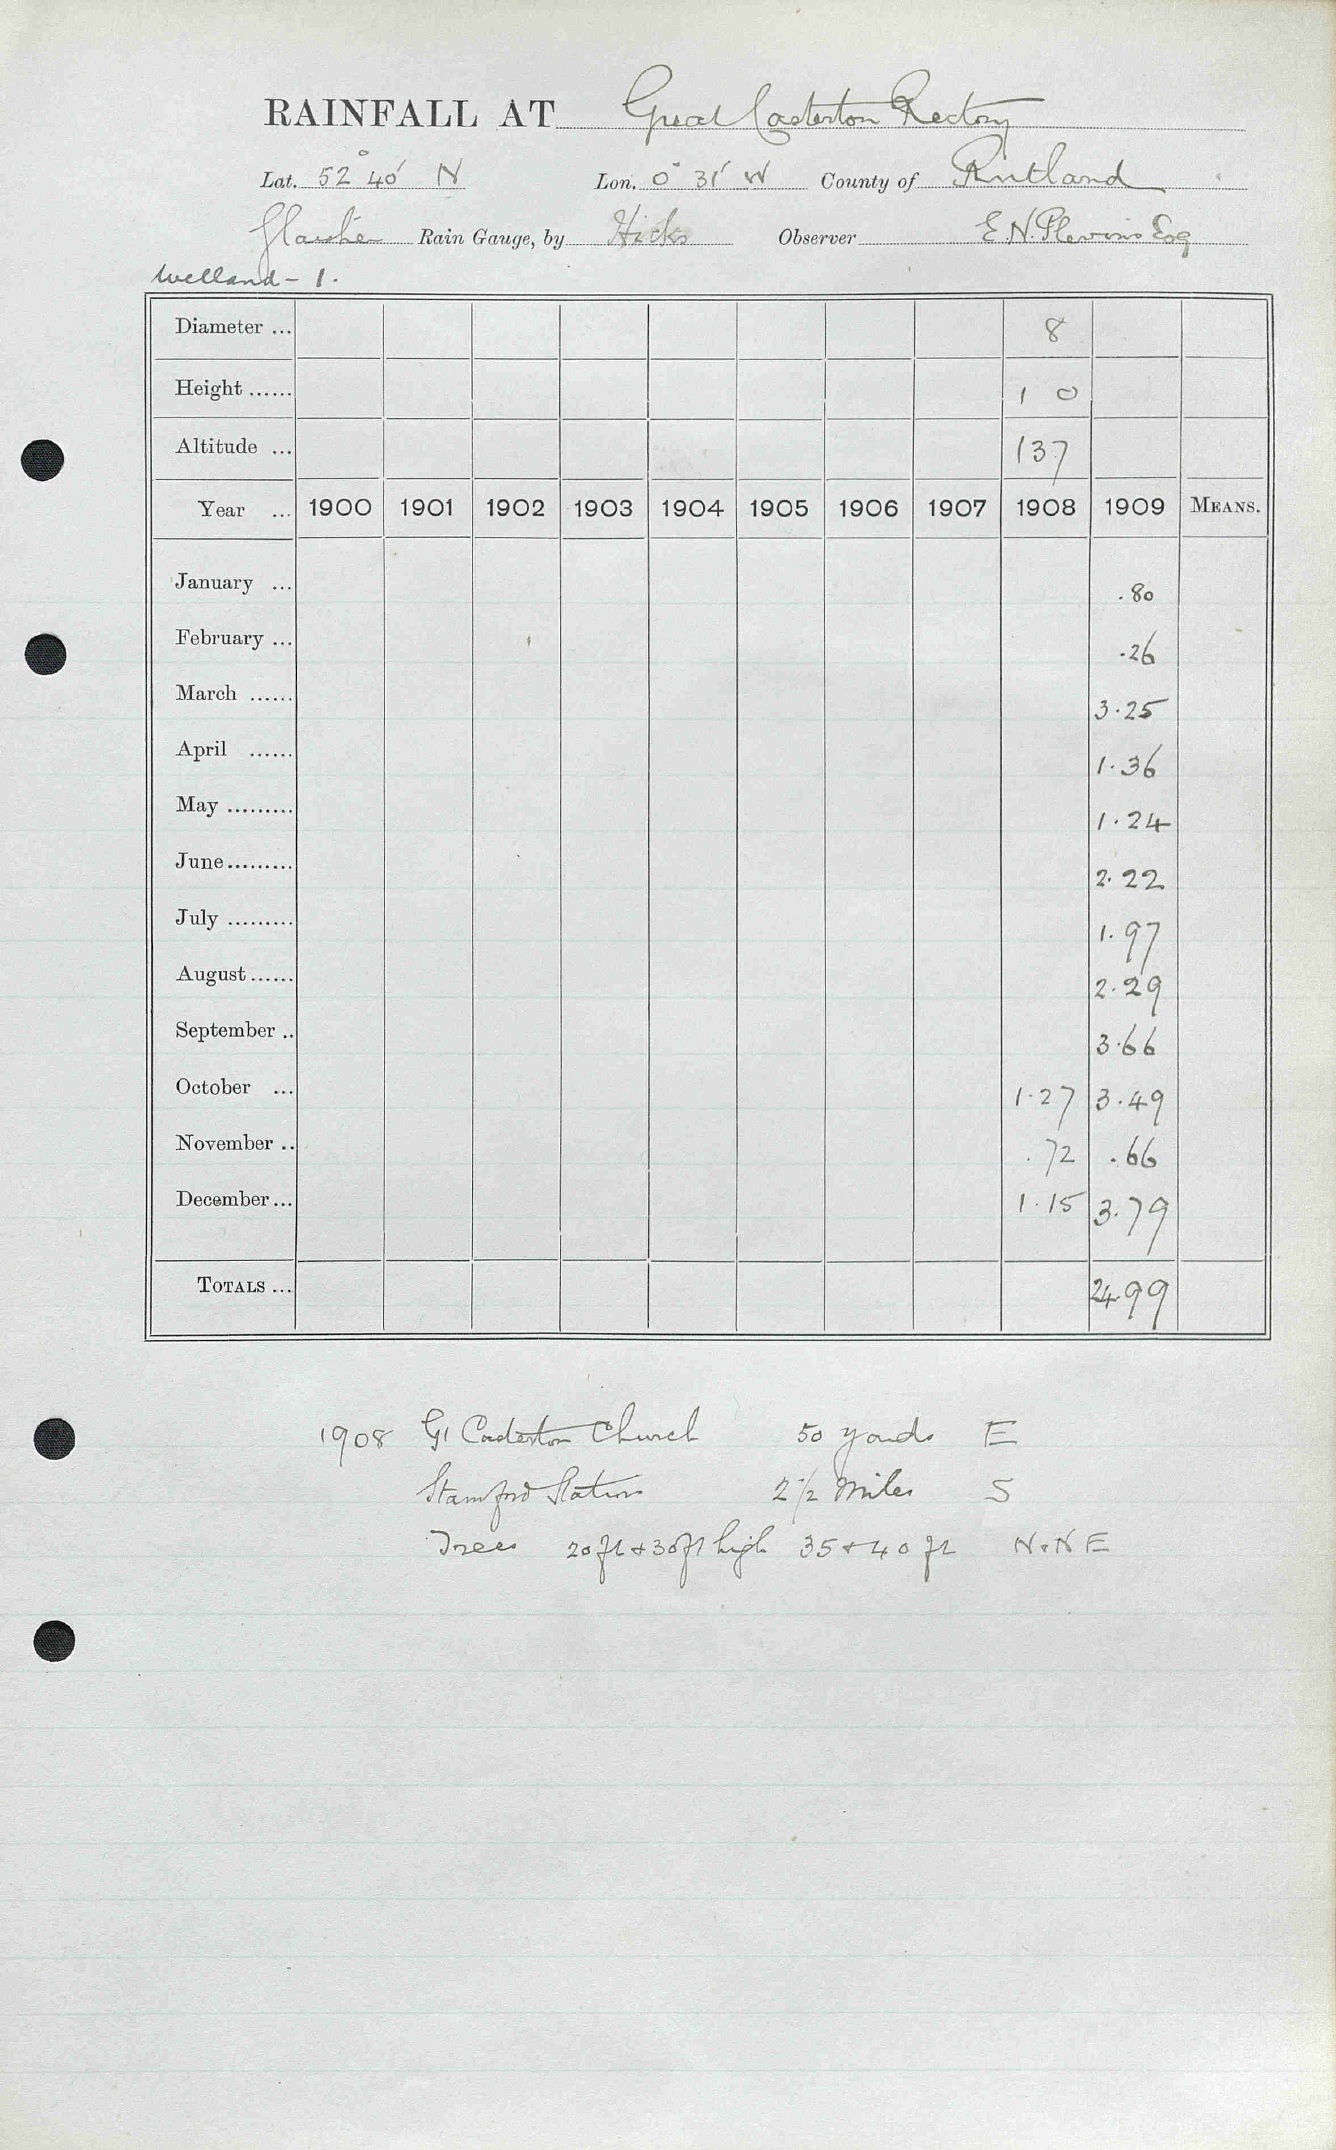 RAINFALL AT Great Casterton Rectory
Lat. 52° 40' N Lon. 0° 31' W County of Rutland
Glaisher Rain Gauge, by Hicks Observer E N. Plevins Esq
Welland - 1.
Diameter ... 8
Height ...... 1 0
Altitude ... 137
Year ... 1900 1901 1902 1903 1904 1905 1906 1907 1908 1909 MEANS.
January ... .80
February ... .26
March ...... 3.25
April ...... 1.36
May ......... 1.24
June......... 2.22
July ......... 1.97
August...... 2.29
September .. 3.66
October ... 1.27 3.49
November .. .72 .66
December... 1.15 3.79
TOTALS ... 24.99
1908 Gt Casterton Church 50 yards E
Stamford Station 2 1/2 Miles S
Trees 20ft + 30ft high 35 + 40 ft N + NE